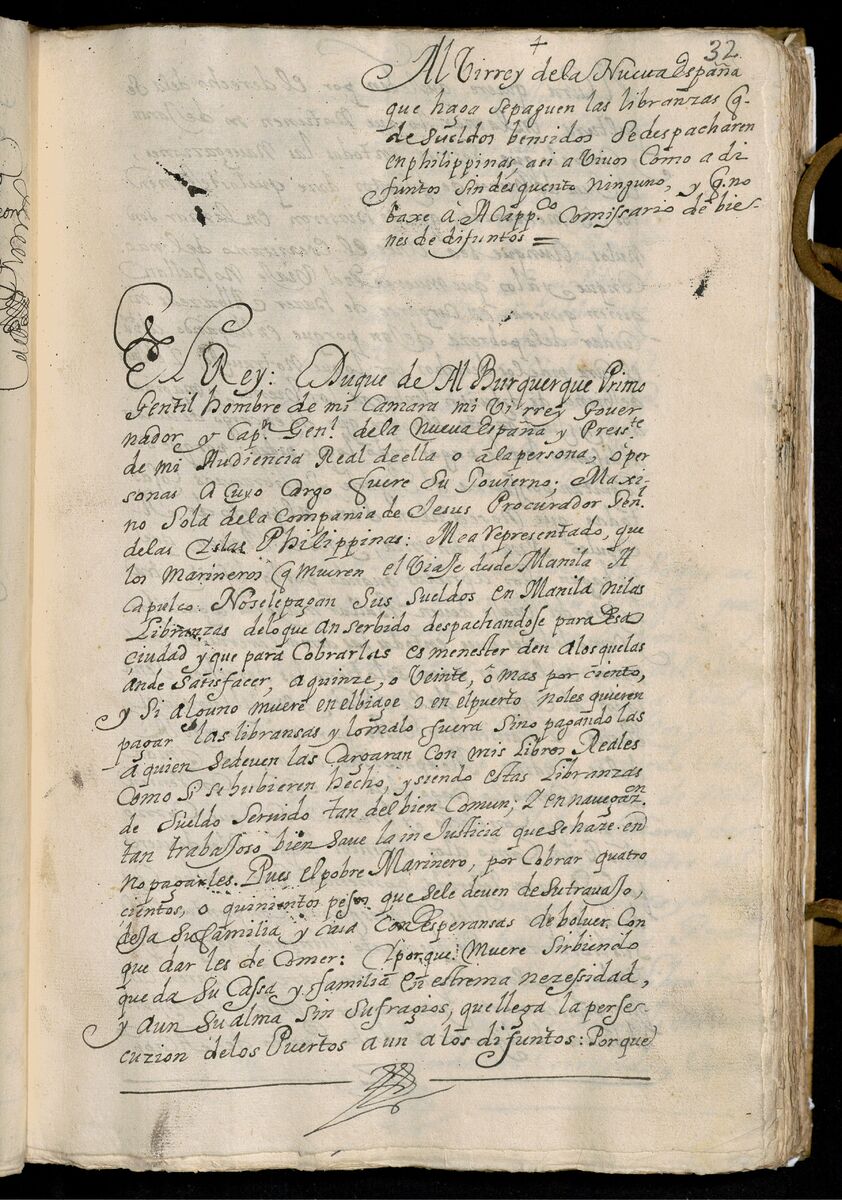 32
Al Virrey de la Nueva España
que haga sepaguen las libranzas q.
de sueldos bensidos Sedespacharen
enphilippinas, asi a Vivos Como a di
funtos sin desquento ninguno, y q. no
baxe â Acapp.co Comissario de bie-
nes de difuntos =
El Rey: Duque de Al Burquerque Primo
Gentil hombre de mi Camara mi Virrey Gover
nador y Cap.n Gen.l de la Nueva España y Press.te
de mi Audiencia Real de ella o âlapersona, ô per
sonas A cuyo Cargo fuere Su Govierno; Maxi-
no Sola dela Compania de Jesus Procurador Gen.l
delas Yslas Philippinas: Mea representado, que
los Marineros q mueren el Viaje desde Manila A
Capulco: Noselepagan Sus Sueldos en Manila nilas
Libranzas deloque an serbido despachandose para Esa
Ciudad y que para Cobrarlas es menester den alosquelas
ânde Satisfacer, a quinze, o Veinte, ô mas por ciento,
y Si alguno muere en elbiage o en elpuerto noles quieren
pagar las libransas y lomalo fuera Sino pagandolas
a quien Sedeven las Cargaran Con mis Libros Reales
Como si se hubieren hecho, y siendo estas Libranzas
de Sueldo Servido tan del bien Comun; Y en navegaz.on
tan trabajoso bien Save la in Justicia que Se haze en
no pagarles. Pues el pobre Marinero, por Cobrar quatro
cientos, o quinientos pesos que sele deven de su travajo,
deja Su familia y casa Con Esperansas de bolver Con
que dar les de Comer: porque Muere Sirbiendo
que da Su Cassa y familia en estrema nezessidad,
y aun Su alma Sin Sufragios, que llega la perse-
cuzion delos Puertos aun a los difuntos: Porque